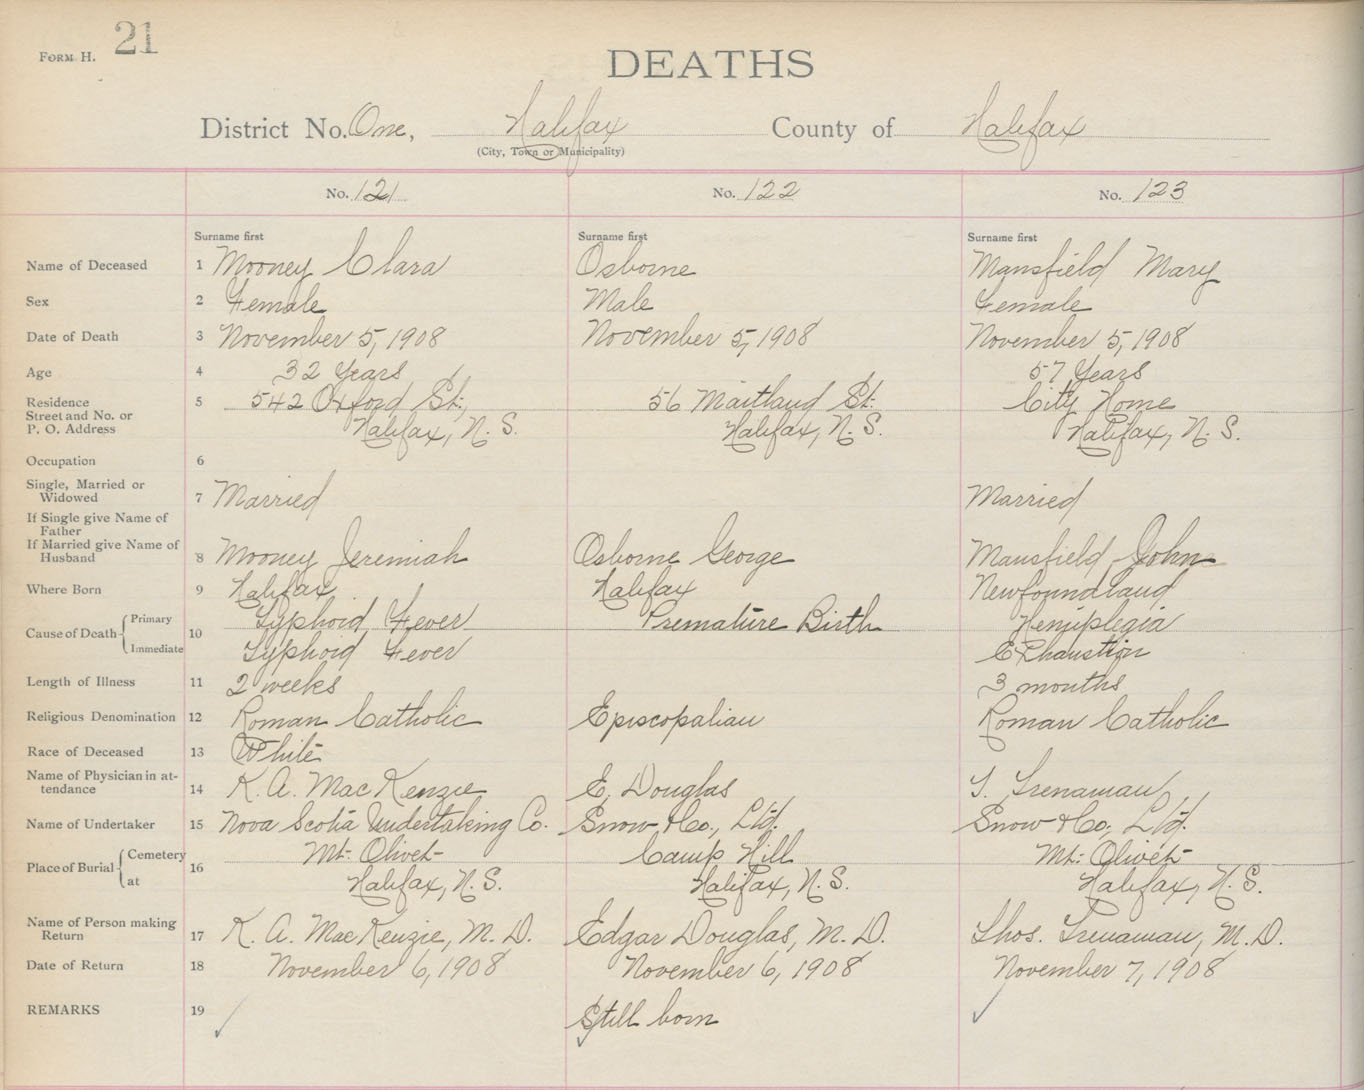 FORM H. 21
DEATHS
District No. One, Halifax County of Halifax
(City, Town or Municipality)
No. 121 No. 122 No. 123
Surname first Surname first Surname first
Name of Deceased 1 Mooney Clara Osborne Mansfield Mary
Sex 2 Female Male Female
Date of Death 3 November 5, 1908 November 5, 1908 November 5, 1908
Age 4 32 Years 57 Years
Residence 5 542 Oxford St. 56 Maitland St. City Home
Street and No. or
P. O. Address Halifax, N. S. Halifax, N. S. Halifax, N. S.
Occupation 6
Single, Married or
Widowed 7 Married Married
If Single give Name of
Father
If Married give Name of
Husband 8 Mooney Jeremiah Osborne George Mansfield John
Where Born 9 Halifax Halifax Newfoundland
Cause of Death 10 Primary Typhoid Fever Premature Birth Hemiplegia
Immediate Typhoid Fever Exhaustion
Length of Illness 11 2 weeks 3 months
Religious Denomination 12 Roman Catholic Episcopalian Roman Catholic
Race of Deceased 13 White
Name of Physician in at-
tendance 14 K. A. MacKenzie E. Douglas T. Trenaman
Name of Undertaker 15 Nova Scotia Undertaking Co. Snow & Co., Ltd. Snow & Co., Ltd.
Place of Burial 16 Cemetery Mt. Olivet Camp Hill Mt. Olivet
at Halifax, N. S. Halifax, N. S. Halifax, N. S.
Name of Person making
Return 17 K. A. MacKenzie, M. D. Edgar Douglas, M. D. Thos. Trenaman, M. D.
Date of Return 18 November 6, 1908 November 6, 1908 November 7, 1908
REMARKS 19 Still born